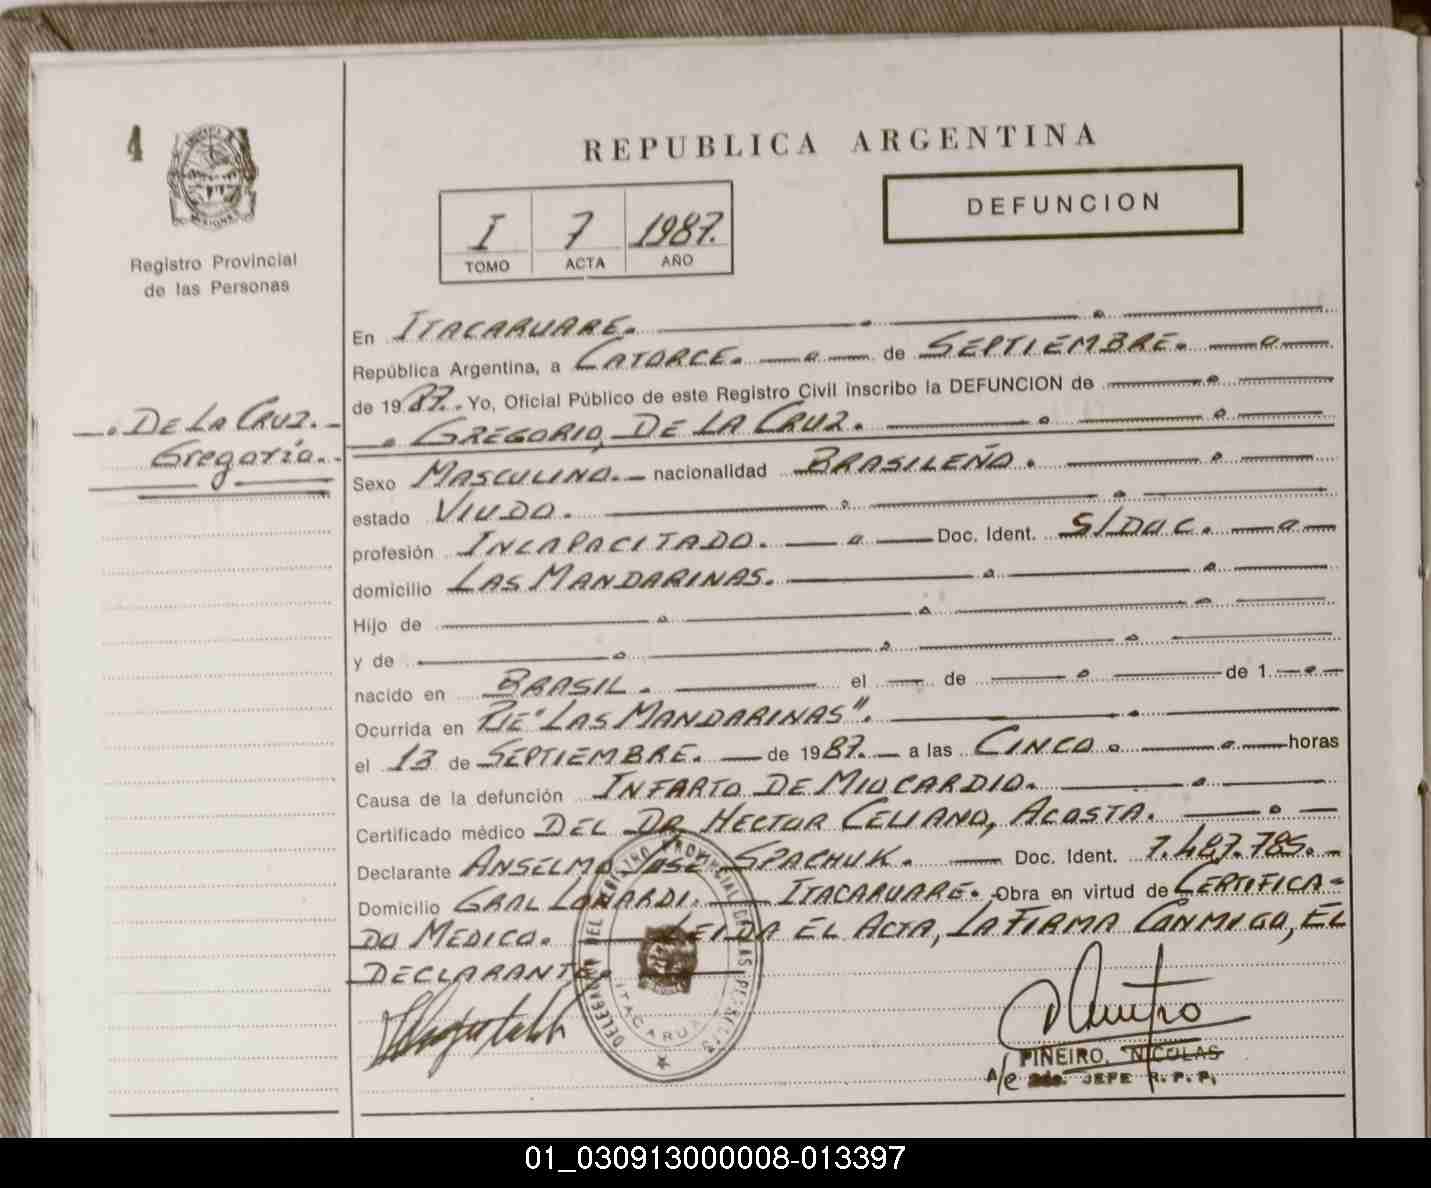 4
Registro Provincial
de las Personas
REPUBLICA ARGENTINA
DEFUNCION
I 7 1987.
TOMO ACTA AÑO
De La Cruz.
Gregorio.
En ITACARUARE.
República Argentina, a CATORCE. de SEPTIEMBRE.
de 1987. Yo, Oficial Público de este Registro Civil inscribo la DEFUNCION de
GREGORIO, DE LA CRUZ.
Sexo MASCULINO. nacionalidad BRASILEÑO.
estado VIUDO.
profesión INCAPACITADO. Doc. Ident. S/DOC.
domicilio LAS MANDARINAS.
Hijo de
y de
nacido en BRASIL. el de de 1
Ocurrida en PJE "LAS MANDARINAS".
el 13 de SEPTIEMBRE. de 1987. a las CINCO horas
Causa de la defunción INFARTO DE MIOCARDIO.
Certificado médico DEL DR HECTOR CELIANO, ACOSTA.
Declarante ANSELMO JOSE SPACHUK. Doc. Ident. 7.487.785.
Domicilio GRAL LONARDI. ITACARUARE. Obra en virtud de CERTIFICA-
DO MEDICO. LEIDA EL ACTA, LA FIRMA CONMIGO, EL
DECLARANTE.
PIÑEIRO, NICOLAS
A/e 2do. JEFE R.P.P.
01_030913000008-013397